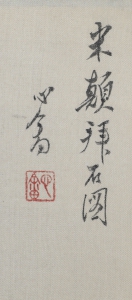 米顛拜石圖
心畬